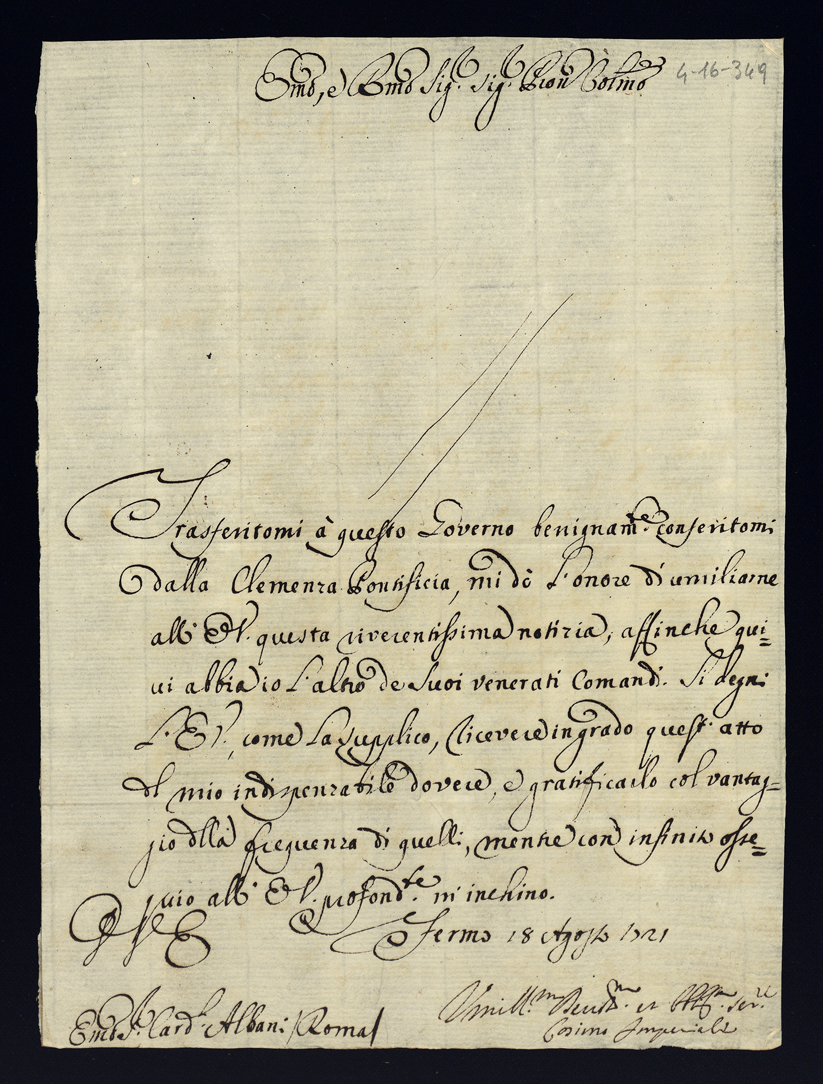 Emo, e Rmo Sig.r Sig.r Pron Colmo
4-16-349
Trasferitomi à questo Governo benignam.te conferitomi
dalla Clemenza Pontificia, mi dò l'onore di umiliarne
all' E.V. questa riverentissima notizia, affinche qui=
vi abbia io l'altro de Suoi venerati Comandi. Si degni
L'E.V., come La Supplico, ricevere in grado quest' atto
del mio indispensabile dovere, e gratificarlo col vantag=
gio della frequenza di quelli, mentre con infinito osse=
quio all' E.V. profond.te m'inchino.
Fermo 18 Agosto 1721
Emo S.r Card.l Albani / Roma /
Umill.mo Devot.mo et Obblig.mo Ser.re
Cosimo Imperiali